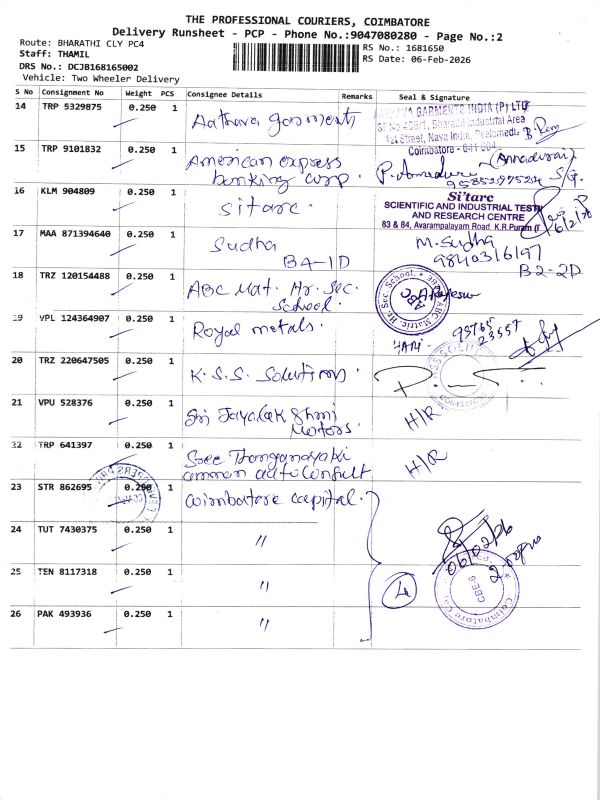 THE PROFESSIONAL COURIERS, COIMBATORE
Delivery Runsheet - PCP - Phone No.:9047080280 - Page No.:2
Route: BHARATHI CLY PC4
Staff: THAMIL
DRS No.: DCJB168165002
Vehicle: Two Wheeler Delivery
RS No.: 1681650
RS Date: 06-Feb-2026
S No Consignment No Weight PCS Consignee Details Remarks Seal & Signature
14 TRP 5329875 0.250 1 Aathava garments
GARMENTS INDIA (P) LTD
Bharathi Industrial Area
1st Street, Nava India, Peelamedu
Coimbatore - 641 004
15 TRP 9101832 0.250 1 American express
banking corp.
(Annadurai)
16 KLM 904809 0.250 1 Sitarc.
Si'tarc
SCIENTIFIC AND INDUSTRIAL TESTI
AND RESEARCH CENTRE
83 & 84, Avarampalayam Road, K.R.Puram
17 MAA 871394640 0.250 1 Sudha
B4-1D
M. Sudha
9840316197
B2-2D
18 TRZ 120154488 0.250 1 ABC Mat. Hr. Sec.
School.
ABC Matric. Hr. Sec. School.
19 VPL 124364907 0.250 1 Royal metals.
HARI - 99765
23557
20 TRZ 220647505 0.250 1 K.S.S. Solutions
21 VPU 528376 0.250 1 Sri Jayalakshmi
Motors.
H/R
22 TRP 641397 0.250 1 Sree Thanganayaki
amman auto consult
H/R
23 STR 862695 0.250 1 Coimbatore capital.
24 TUT 7430375 0.250 1 "
06/02/26
2.00pm
25 TEN 8117318 0.250 1 "
4
Coimbatore
CBE-6
26 PAK 493936 0.250 1 "